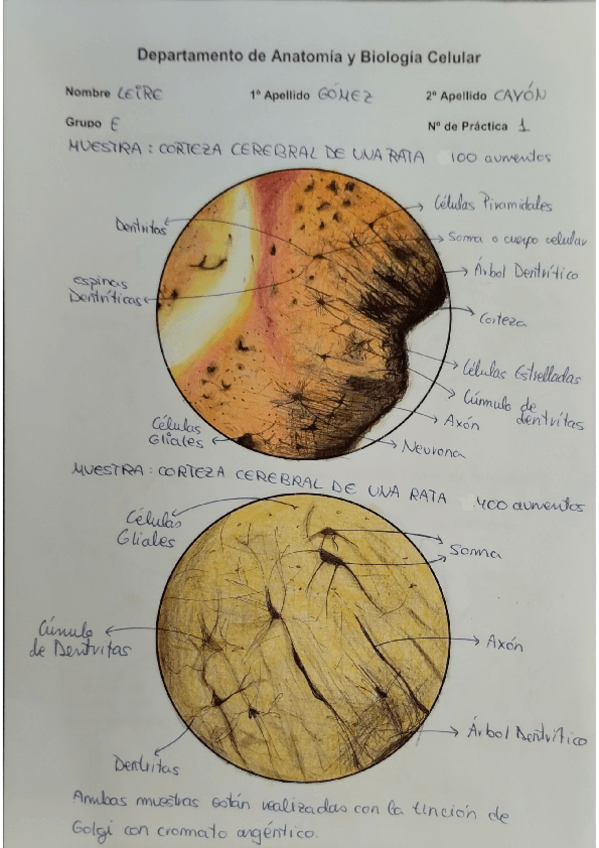 Departamento de Anatomía y Biología Celular
Nombre LEIRE 1º Apellido GÓMEZ 2º Apellido CAYÓN
Grupo E Nº de Práctica 1
MUESTRA: CORTEZA CEREBRAL DE UNA RATA 100 aumentos
Dentritas
espinas
Dentríticas
Células
Gliales
Células Piramidales
Soma o cuerpo celular
Árbol Dentrítico
Corteza
Células Estrelladas
Cúmulo de
dentritas
Axón
Neurona
MUESTRA: CORTEZA CEREBRAL DE UNA RATA 400 aumentos
Células
Gliales
Cúmulo
de Dentritas
Dentritas
Soma
Axón
Árbol Dentrítico
Ambas muestras están realizadas con la tinción de
Golgi con cromato argéntico.